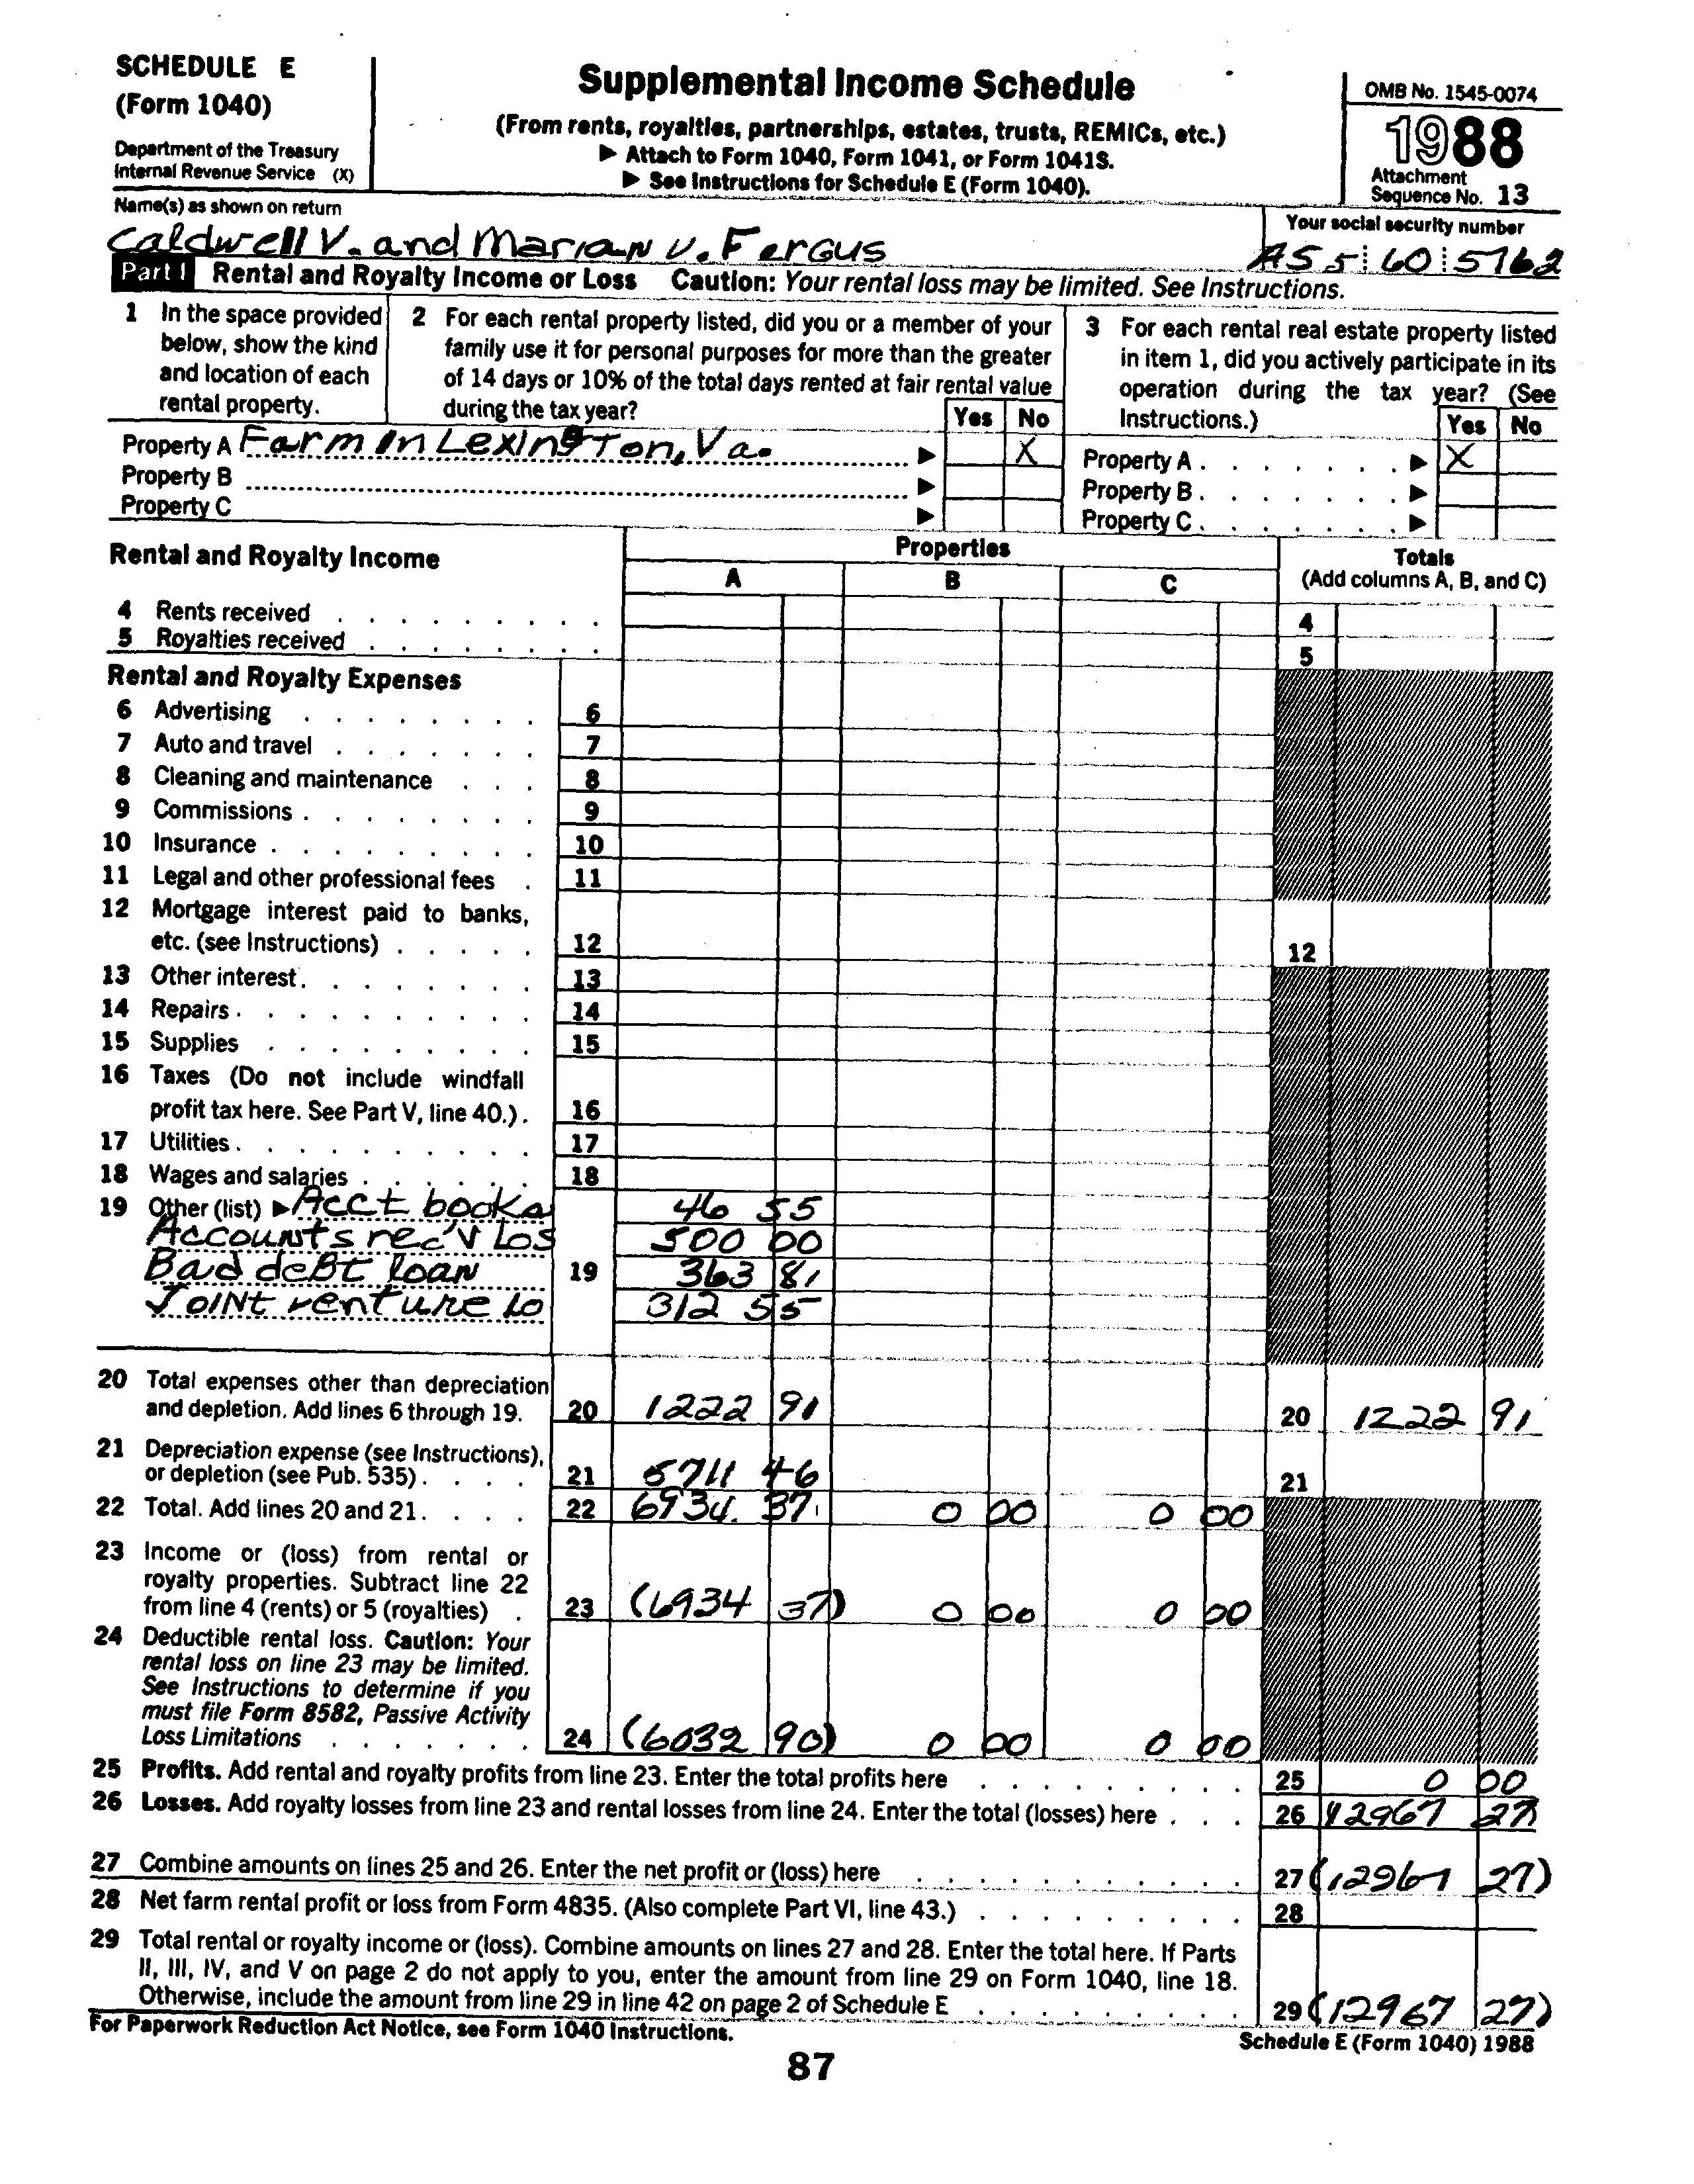 SCHEDULE E
(Form 1040)
Department of the Treasury
Internal Revenue Service (X)
Supplemental Income Schedule
(From rents, royalties, partnerships, estates, trusts, REMICs, etc.)
▶ Attach to Form 1040, Form 1041, or Form 1041S.
▶ See Instructions for Schedule E (Form 1040).
OMB No. 1545-0074
1988
Attachment
Sequence No. 13
Name(s) as shown on return
Caldwell V. and Marian V. Fergus
Your social security number
AS5 60 5762
Part I Rental and Royalty Income or Loss Caution: Your rental loss may be limited. See Instructions.
1 In the space provided
below, show the kind
and location of each
rental property.
2 For each rental property listed, did you or a member of your
family use it for personal purposes for more than the greater
of 14 days or 10% of the total days rented at fair rental value
during the tax year?
Yes No
3 For each rental real estate property listed
in item 1, did you actively participate in its
operation during the tax year? (See
Instructions.)
Yes No
Property A Farm in Lexington, Va. ▶ X
Property B ▶
Property C ▶
Property A . . . . . . . ▶ X
Property B . . . . . . . ▶
Property C . . . . . . . ▶
Rental and Royalty Income
Properties
A B C
Totals
(Add columns A, B, and C)
4 Rents received 4
5 Royalties received 5
Rental and Royalty Expenses
6 Advertising 6
7 Auto and travel 7
8 Cleaning and maintenance 8
9 Commissions 9
10 Insurance 10
11 Legal and other professional fees 11
12 Mortgage interest paid to banks,
etc. (see Instructions) 12 12
13 Other interest 13
14 Repairs 14
15 Supplies 15
16 Taxes (Do not include windfall
profit tax here. See Part V, line 40.) 16
17 Utilities 17
18 Wages and salaries 18
19 Other (list) ▶ Acct books 46 55
Accounts rec'v Los 500 00
Bad debt loan 19 363 81
Joint venture lo 312 55
20 Total expenses other than depreciation
and depletion. Add lines 6 through 19. 20 1222 91 20 1222 91
21 Depreciation expense (see Instructions),
or depletion (see Pub. 535) 21 5711 46 21
22 Total. Add lines 20 and 21 22 6934. 37 0 00 0 00
23 Income or (loss) from rental or
royalty properties. Subtract line 22
from line 4 (rents) or 5 (royalties) 23 (6934 37) 0 00 0 00
24 Deductible rental loss. Caution: Your
rental loss on line 23 may be limited.
See Instructions to determine if you
must file Form 8582, Passive Activity
Loss Limitations 24 (6032 90) 0 00 0 00
25 Profits. Add rental and royalty profits from line 23. Enter the total profits here 25 0 00
26 Losses. Add royalty losses from line 23 and rental losses from line 24. Enter the total (losses) here 26 (12967 27)
27 Combine amounts on lines 25 and 26. Enter the net profit or (loss) here 27 (12967 27)
28 Net farm rental profit or loss from Form 4835. (Also complete Part VI, line 43.) 28
29 Total rental or royalty income or (loss). Combine amounts on lines 27 and 28. Enter the total here. If Parts
II, III, IV, and V on page 2 do not apply to you, enter the amount from line 29 on Form 1040, line 18.
Otherwise, include the amount from line 29 in line 42 on page 2 of Schedule E 29 (12967 27)
For Paperwork Reduction Act Notice, see Form 1040 Instructions.
Schedule E (Form 1040) 1988
87